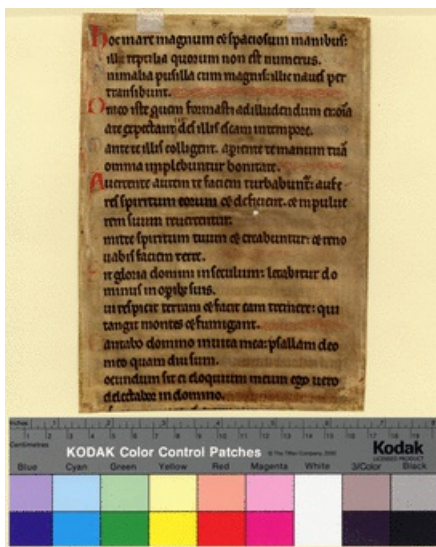 Hoc mare magnum et spaciosum manibus:
illic reptilia quorum non est numerus.
nimalia pusilla cum magnis: illic naues per
transibunt.
Draco iste quem formasti ad illudendum ei: omia
a te expectant det illis escam in tempore.
Dante te illis colligent. aperiente te manum tuā
omnia implebuntur bonitate.
Auertente autem te faciem turbabunt: aufe
res spiritum eorum et deficient. et in pulue
rem suum reuertentur.
mitte spiritum tuum et creabuntur: et reno
uabis faciem terre.
it gloria domini in seculum: letabitur do
minus in opibs suis.
ui respicit terram et facit eam tremere: qui
tangit montes et fumigant.
antabo domino in uita mea: psallam deo
meo quam diu sum.
ocundum sit ei eloquium meum ego uero
delectabor in domino.
Inches 1 2 3 4 5 6 7 8
Centimetres 1 2 3 4 5 6 7 8 9 10 11 12 13 14 15 16 17 18 19
KODAK Color Control Patches © The Tiffen Company, 2000 Kodak
LICENSED PRODUCT
Blue Cyan Green Yellow Red Magenta White 3/Color Black